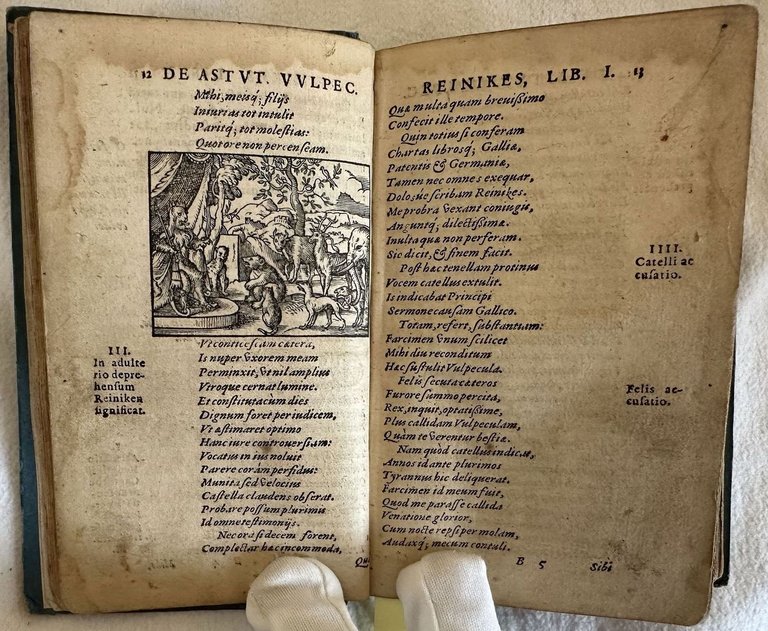 12 DE ASTVT. VVLPEC.
Mihi, meisq́; filijs
Iniurias tot intulit
Paritq́; tot molestias:
Quot ore non percenseam.
III.
In adulte
rio depre-
hensum
Reiniken
significat.
Vt conticescam cætera,
Is nuper vxorem meam
Perminxit, vt nil amplius
Vtroque cernat lumine.
Et constituta cùm dies
Dignum foret per iudicem,
Vt æstimaret optimo
Hanc iure controuersiam:
Vocatus in ius noluit
Parere coràm perfidus:
Munita sed velocius
Castella claudens obserat.
Probare possum plurimis
Id omne testimonijs.
Nec ora si decem forent,
Complectar hæc incommoda,
Quæ
REINIKES, LIB. I. 13
Quæ multa quam breuißimo
Confecit ille tempore.
Quin totius si conferam
Chartas librosq́; Galliæ,
Patentis & Germaniæ,
Tamen nec omnes exequar,
Dolos nec scribam Reinikes.
Me probra vexant coniugis,
Anguntq́; dilectißimæ.
Inulta quæ non perferam.
Sic dicit, & finem facit.
IIII.
Catelli ac
cusatio.
Post hæc tenellam protinus
Vocem catellus extulit.
Is indicabat Principi
Sermone causam Gallico.
Totam, refert, substantiam:
Farcimen vnum scilicet
Mihi diu reconditum
Hæc sustulit Vulpecula.
Felis ac-
cusatio.
Felis secuta cæteros
Furore summo percita,
Rex, inquit, optatißime,
Plus callidam Vulpeculam,
Quàm te verentur bestiæ.
Nam quòd catellus indicat,
Annos id ante plurimos
Tyrannus hic deliquerat.
Farcimen id meum fuit,
Quod me parasse callida
Venatione glorior,
Cum nocte repsi per molam,
Audaxq́; mecum contuli.
B 5 Sibi